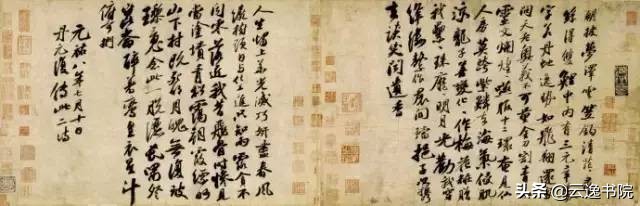 朝披夢澤雲笠釣青茫茫尋
絲得雙鯉中有三元章篆
字若丹蛇逸勢如飛翔還家
問天老奧義不可量金刀割青素
靈文爛煌煌嚥服十二環奄見仙
人房暮跨紫鱗去海氣侵肌
涼龍子善變化化作梅花粧贈
我纍纍珠靡靡明月光勸我穿
絳縷繫作裙間璫挹子以攜
去談笑聞遺香
人生燭上華光滅巧妍盡春風
繞樹頭日與化工進只知雨露貪不
聞零落近我昔飛骨時慘見
當塗墳青松靄朝霞縹緲
山下村既死明月魄無復玻
瓈魂念此一脫灑長嘯登
崑崙醉著鸞皇衣星斗
俯可捫
元祐八年七月十日
丹元復傳此二詩
头条 @云逸书院